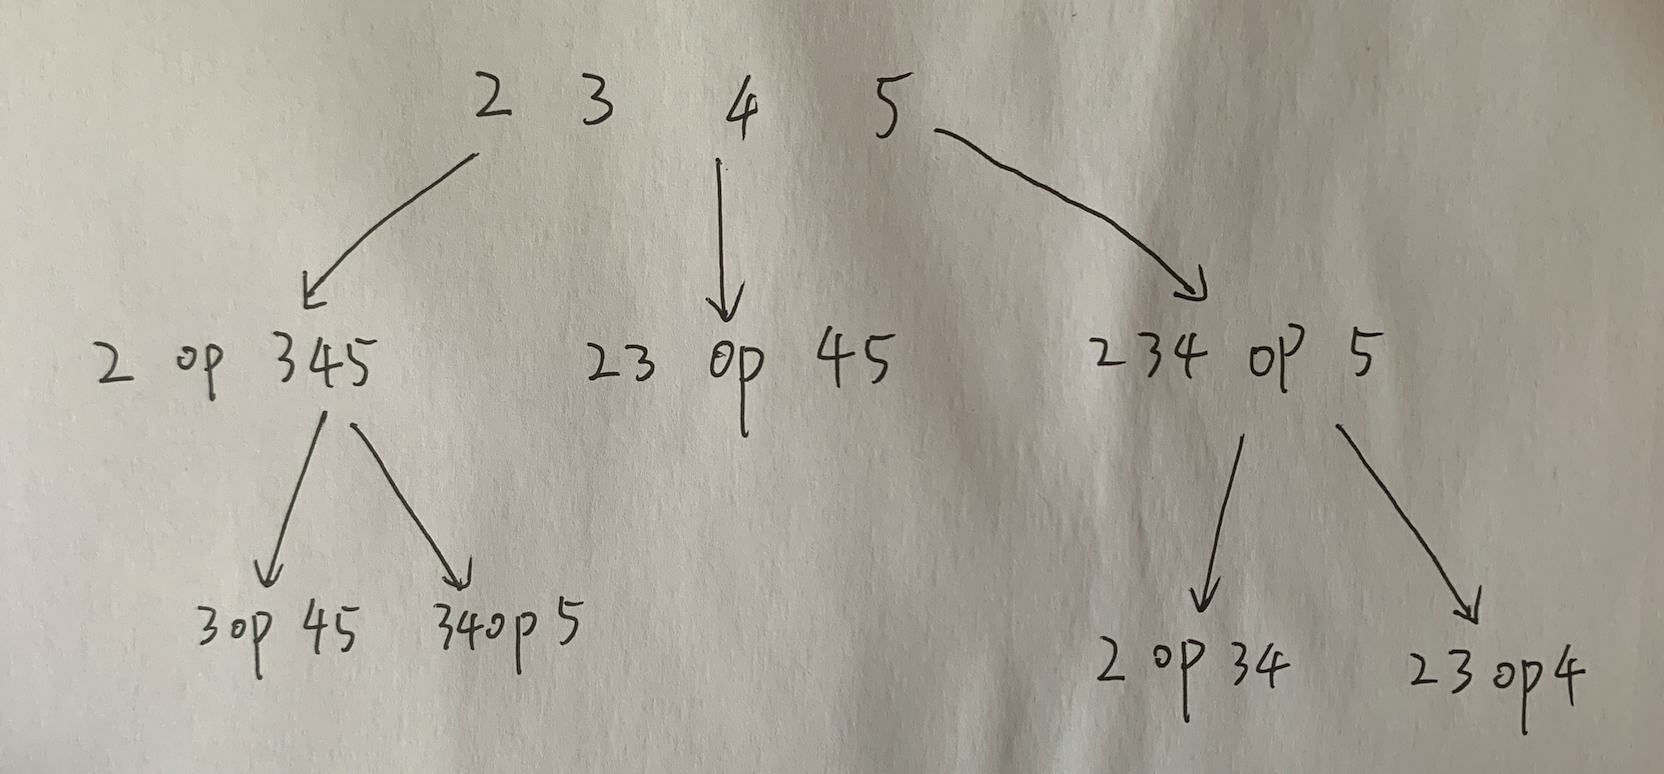 2 3 4 5
2 op 345
23 op 45
234 op 5
3 op 45
34 op 5
2 op 34
23 op 4